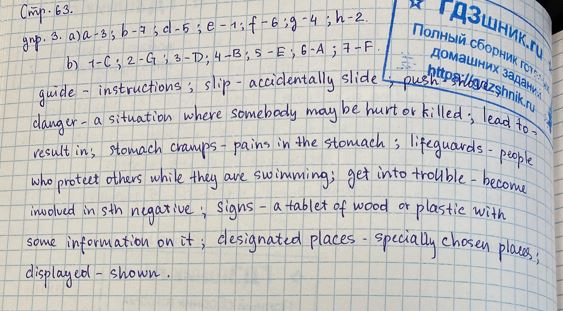 Стр. 63.
упр. 3. a) a-3; b-7; d-5; e-1; f-6; g-4; h-2.
b) 1-C; 2-G; 3-D; 4-B; 5-E; 6-A; 7-F.
guide - instructions; slip - accidentally slide; push -
danger - a situation where somebody may be hurt or killed; lead to -
result in; stomach cramps - pains in the stomach; lifeguards - people
who protect others while they are swimming; get into trouble - become
involved in sth negative; signs - a tablet of wood or plastic with
some information on it; designated places - specially chosen places;
displayed - shown.
ГДЗшник.ru
Полный сборник
домашних заданий
https://gdzshnik.ru